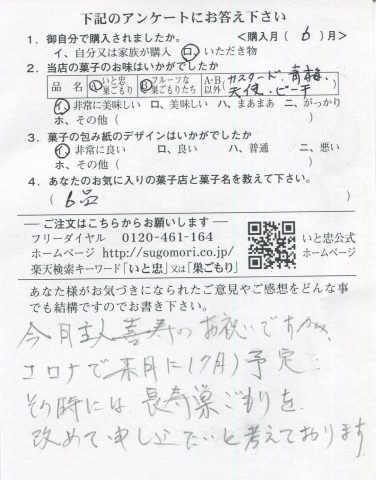 下記のアンケートにお答え下さい
1. 御自分で購入されましたか。 <購入月(6)月>
イ、自分又は家族が購入 ロ、いただき物
2. 当店の菓子のお味はいかがでしたか
品 名 A いと忠巣ごもり B フルーツな巣ごもりたち A・B以外 カスタード、青梅、天使、ピーチ
イ、非常に美味しい ロ、美味しい ハ、まあまあ ニ、がっかり
ホ、その他(
3. 菓子の包み紙のデザインはいかがでしたか
イ、非常に良い ロ、良い ハ、普通 ニ、悪い
ホ、その他(
4. あなたのお気に入りの菓子店と菓子名を教えて下さい。
( 6品 )
ご注文はこちらからお願いします
フリーダイヤル 0120-461-164
ホームページ http://sugomori.co.jp/
楽天検索キーワード「いと忠」又は「巣ごもり」
いと忠公式
ホームページ
あなた様がお気づきになられたご意見やご感想をどんな事
でも結構ですのでお書き下さい。
今月主人喜寿のお祝いですが、
コロナで来月に(7月)予定
その時には長寿巣ごもりを
改めて申し込たいと考えております